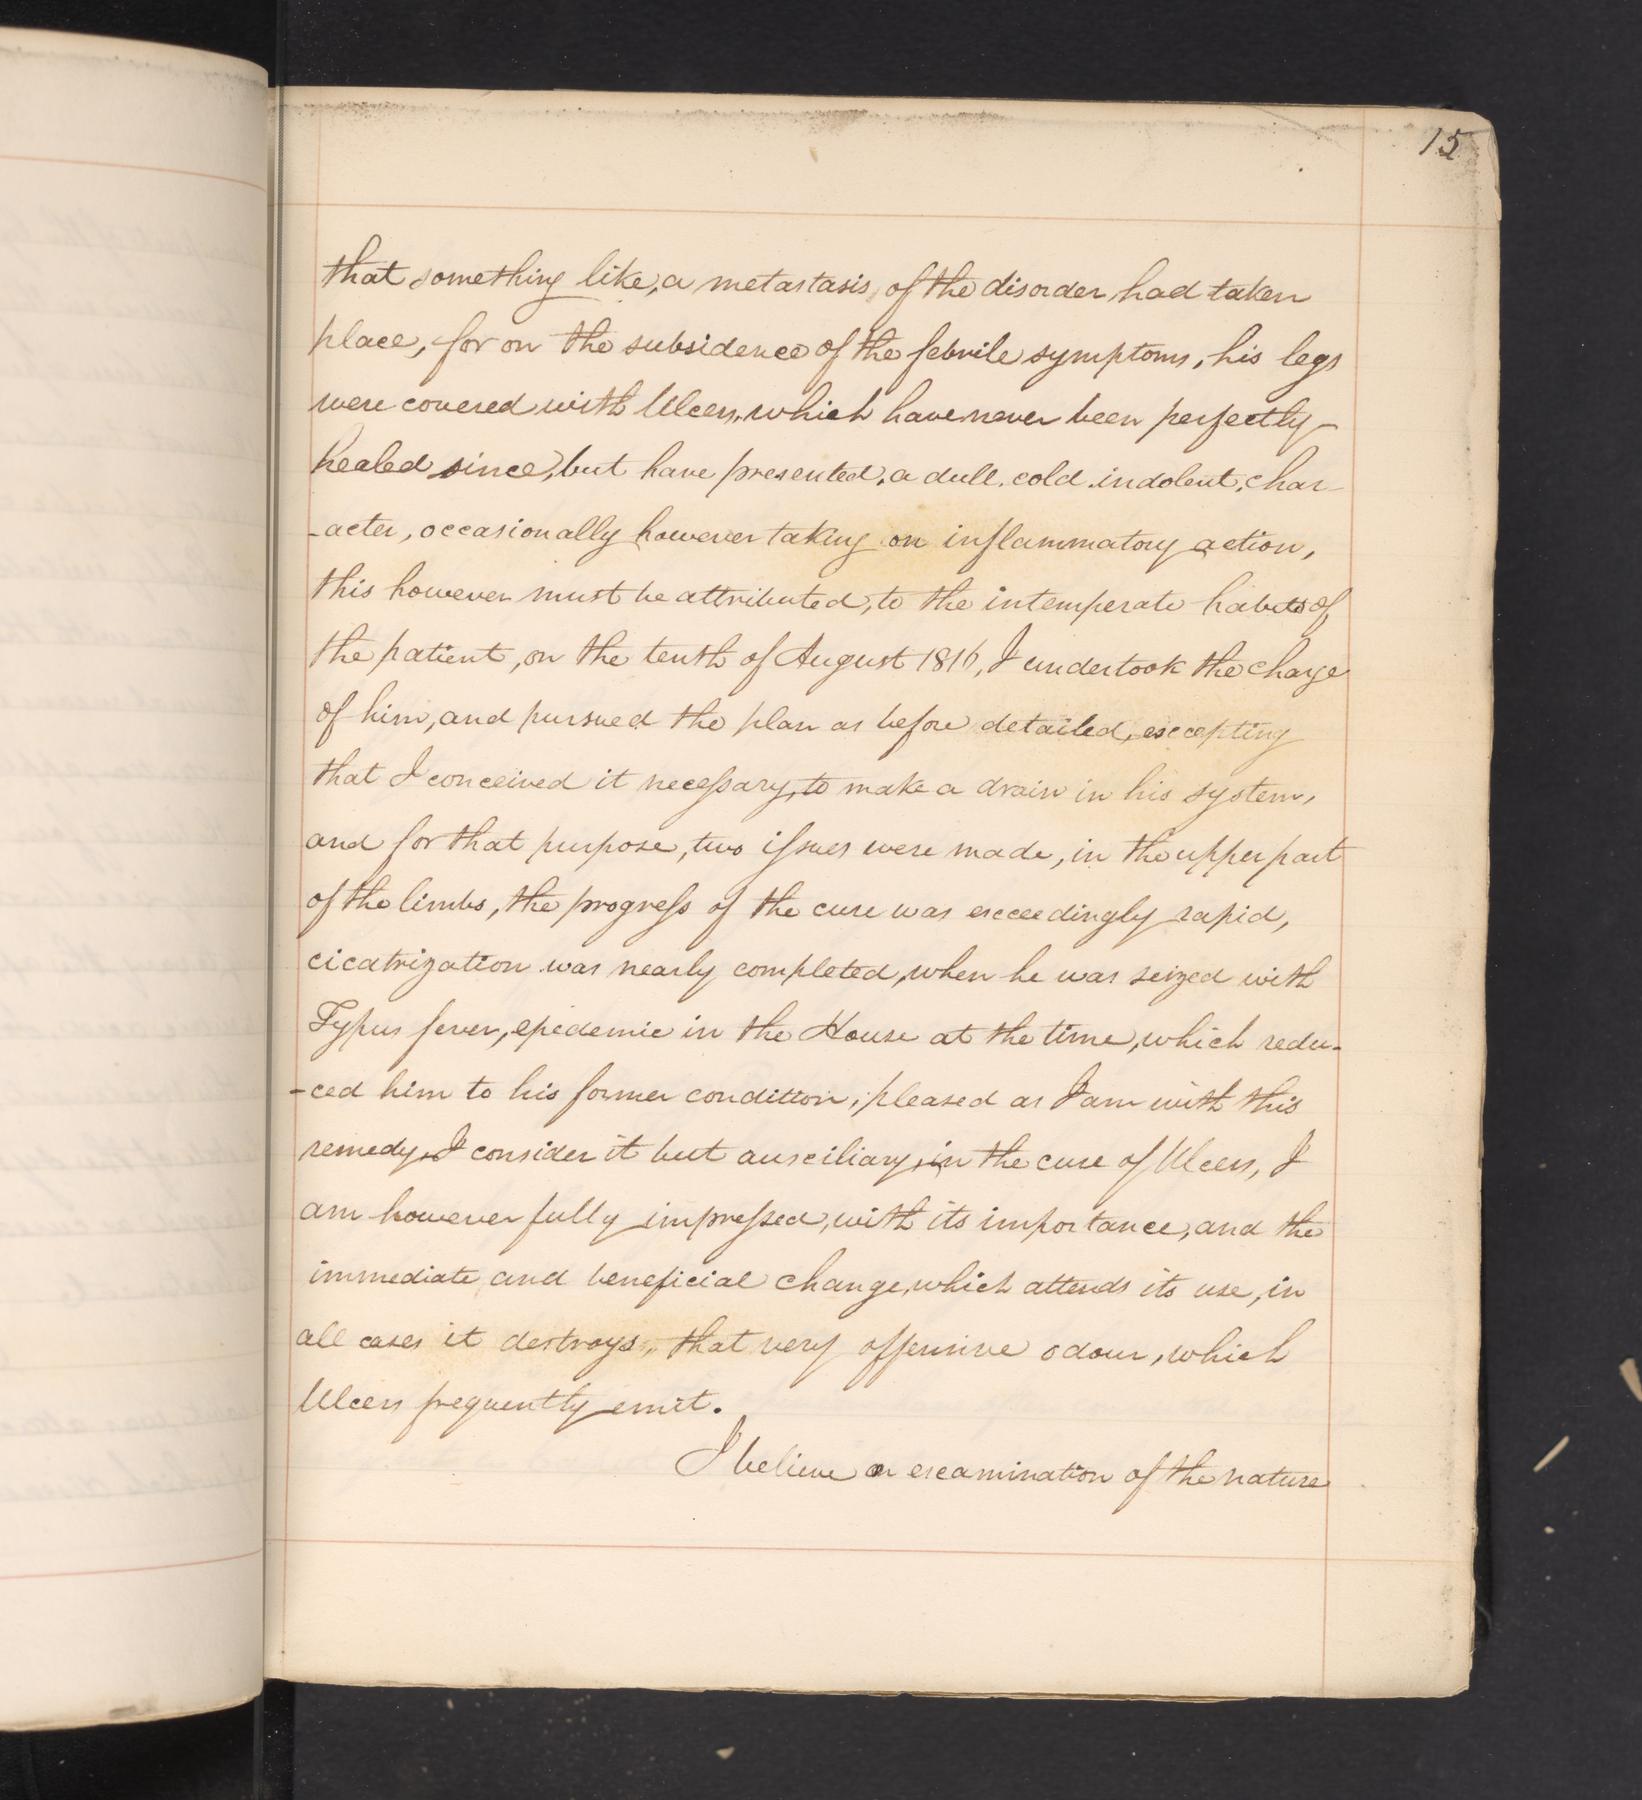 15
that something like, a metastasis, of the disorder had taken
place, for on the subsidence of the febrile symptoms, his legs
were covered with Ulcers, which have never been perfectly
healed since, but have presented, a dull, cold, indolent, char-
-acter, occasionally however taking on inflammatory action,
this however must be attributed, to the intemperate habits of
the patient, on the tenth of August 1816, I undertook the charge
of him, and pursued the plan as before detailed, excepting
that I conceived it necessary, to make a drain in his system,
and for that purpose, two issues were made, in the upper part
of the limbs, the progress of the cure was exceedingly rapid,
cicatrization was nearly completed, when he was seized with
Typus fever, epedemic in the House at the time, which redu-
-ced him to his former condition; pleased as I am with this
remedy, I consider it but auxciliary, in the cure of Ulcers, I
am however fully impressed, with its importance, and the
immediate and beneficial change, which attends its use, in
all cases it destroys, that very offensive odour, which
Ulcers frequently emit.
I believe on examination of the nature